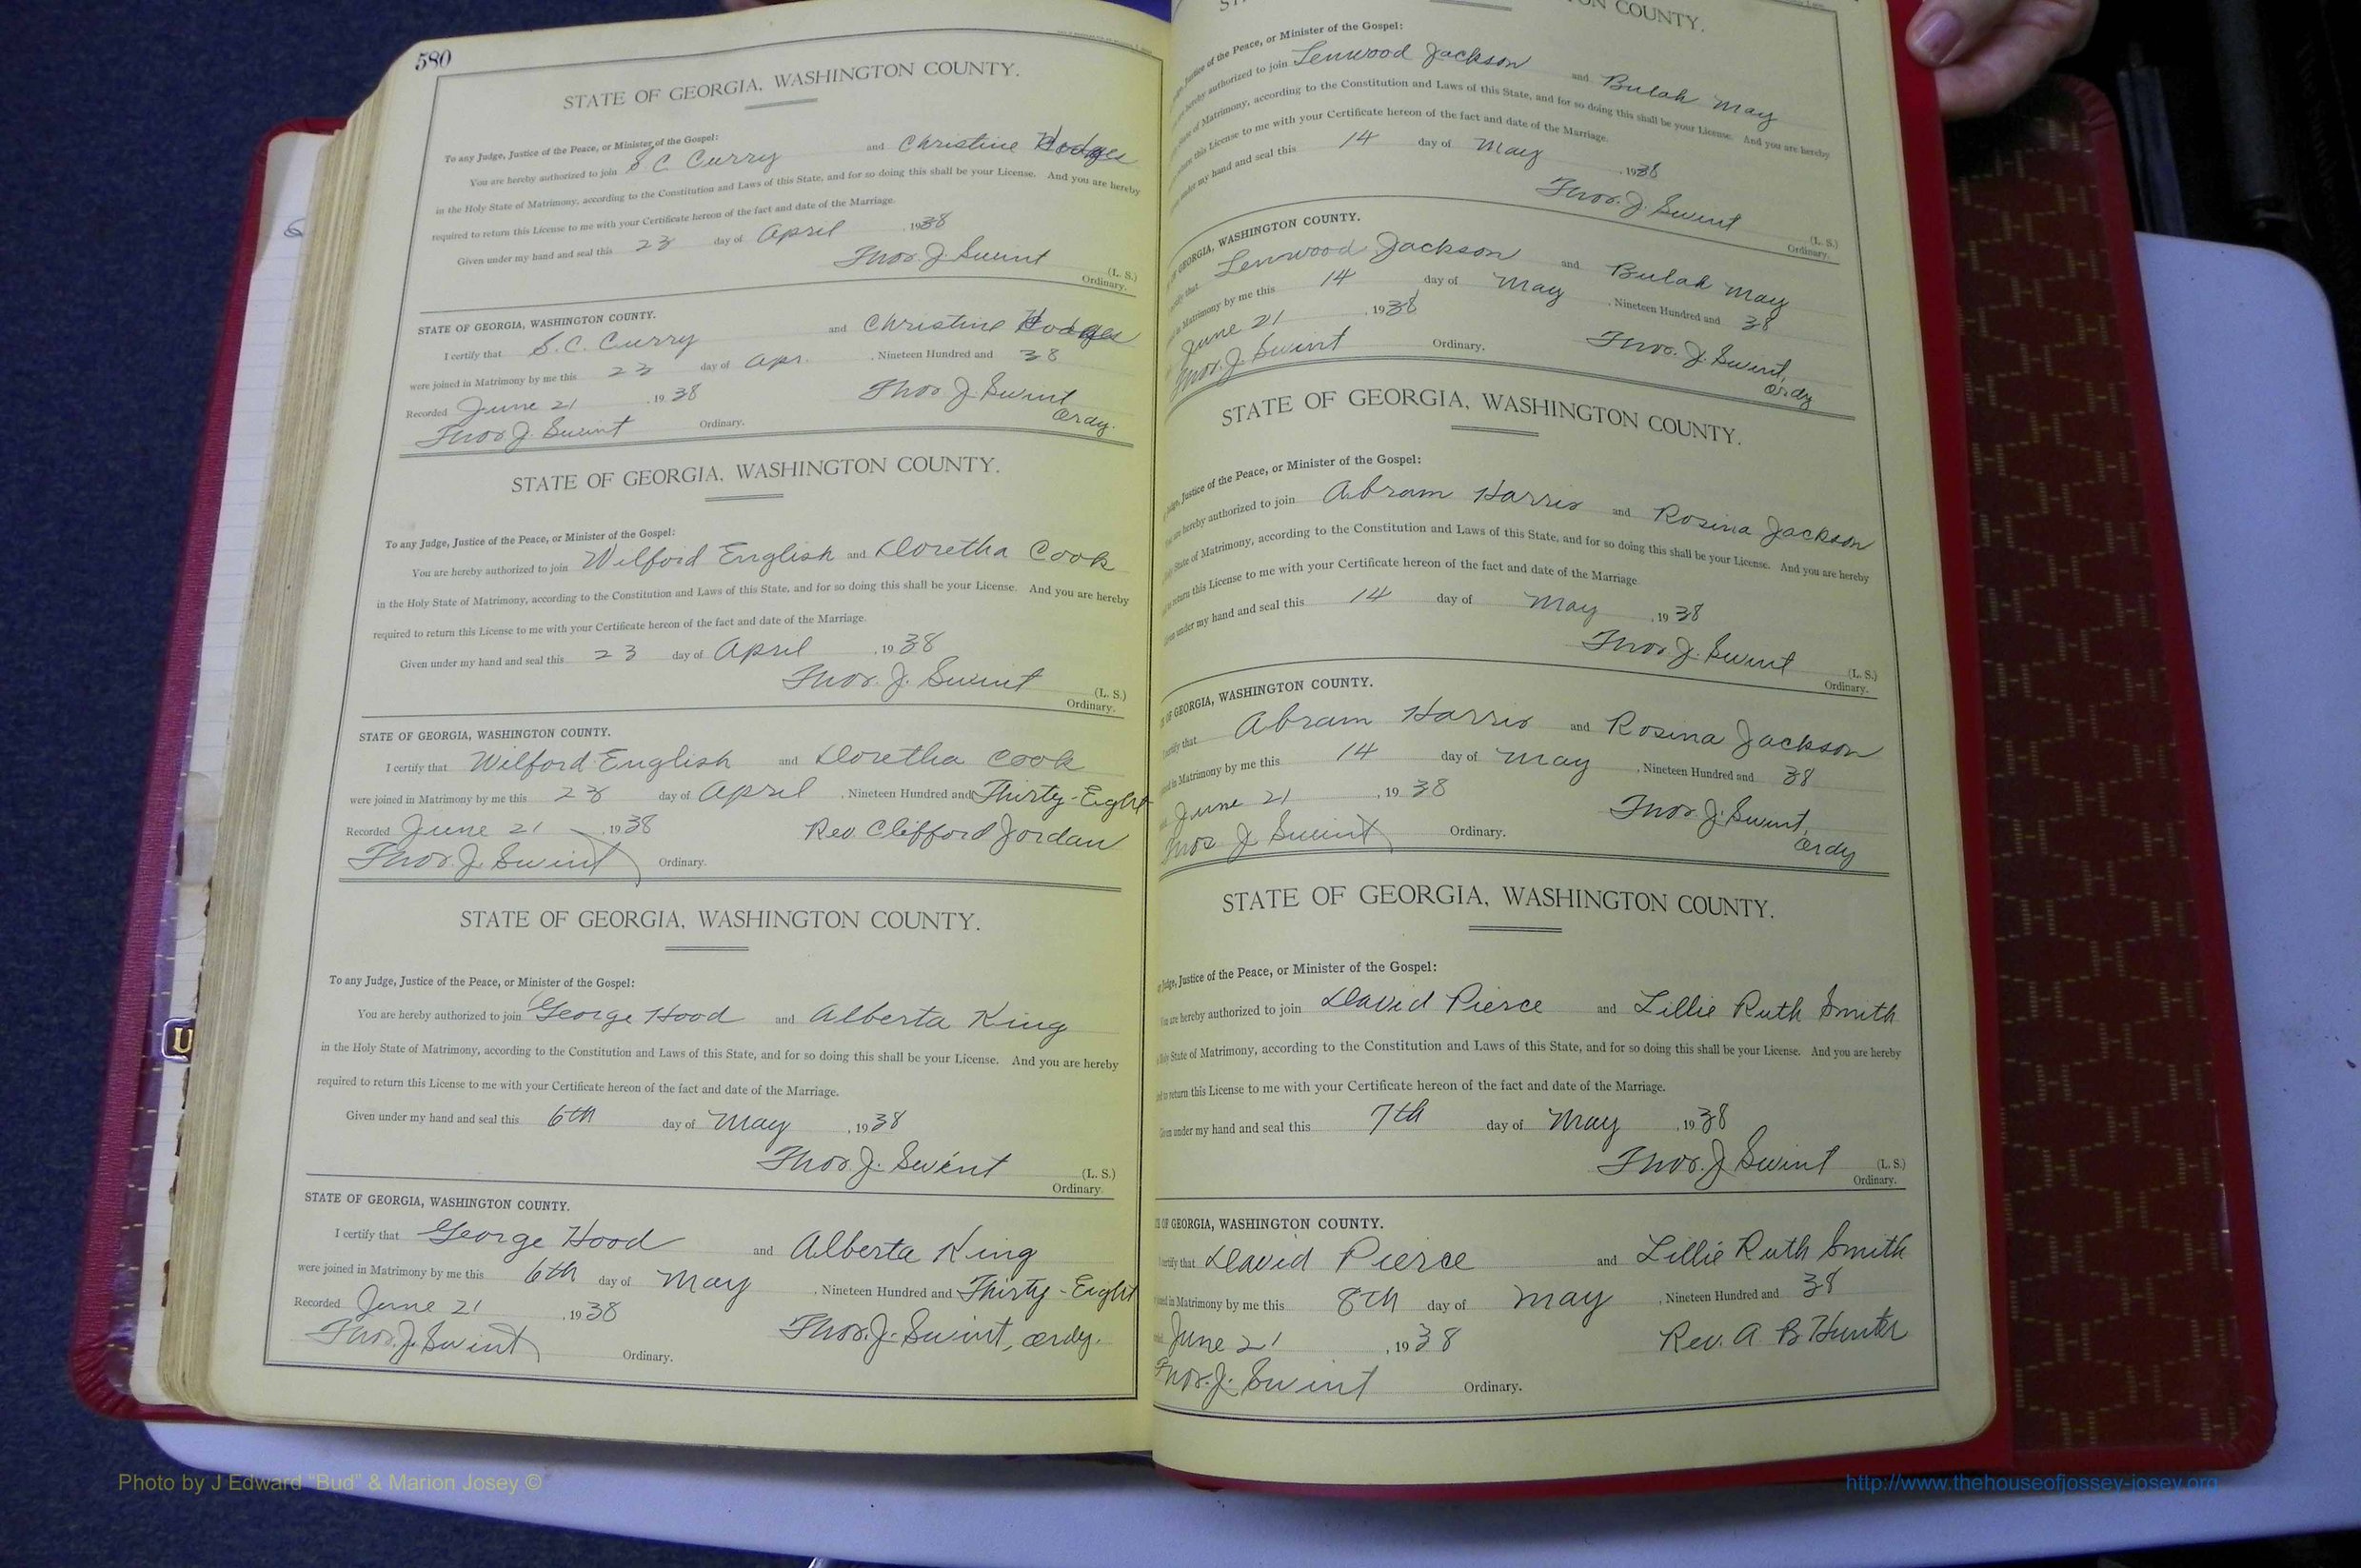 580
STATE OF GEORGIA, WASHINGTON COUNTY.
To any Judge, Justice of the Peace, or Minister of the Gospel:
You are hereby authorized to join S. C. Curry and Christine Hodges
in the Holy State of Matrimony, according to the Constitution and Laws of this State, and for so doing this shall be your License. And you are hereby
required to return this License to me with your Certificate hereon of the fact and date of the Marriage.
Given under my hand and seal this 23 day of April, 1938
Thos. J. Swint (L. S.)
Ordinary.
STATE OF GEORGIA, WASHINGTON COUNTY.
I certify that S. C. Curry and Christine Hodges
were joined in Matrimony by me this 23 day of Apr., Nineteen Hundred and 38
Recorded June 21, 1938 Thos J. Swint
Thos J. Swint Ordinary. Ordy.
STATE OF GEORGIA, WASHINGTON COUNTY.
To any Judge, Justice of the Peace, or Minister of the Gospel:
You are hereby authorized to join Wilford English and Doretha Cook
in the Holy State of Matrimony, according to the Constitution and Laws of this State, and for so doing this shall be your License. And you are hereby
required to return this License to me with your Certificate hereon of the fact and date of the Marriage.
Given under my hand and seal this 23 day of April, 1938
Thos. J. Swint (L. S.)
Ordinary.
STATE OF GEORGIA, WASHINGTON COUNTY.
I certify that Wilford English and Doretha Cook
were joined in Matrimony by me this 23 day of April, Nineteen Hundred and Thirty-Eight
Recorded June 21, 1938 Rev. Clifford Jordan
Thos. J. Swint Ordinary.
STATE OF GEORGIA, WASHINGTON COUNTY.
To any Judge, Justice of the Peace, or Minister of the Gospel:
You are hereby authorized to join George Hood and Alberta King
in the Holy State of Matrimony, according to the Constitution and Laws of this State, and for so doing this shall be your License. And you are hereby
required to return this License to me with your Certificate hereon of the fact and date of the Marriage.
Given under my hand and seal this 6th day of May, 1938
Thos. J. Swint (L. S.)
Ordinary.
STATE OF GEORGIA, WASHINGTON COUNTY.
I certify that George Hood and Alberta King
were joined in Matrimony by me this 6th day of May, Nineteen Hundred and Thirty-Eight
Recorded June 21, 1938 Thos. J. Swint, Ordy.
Thos. J. Swint Ordinary.
COUNTY.
Justice of the Peace, or Minister of the Gospel:
hereby authorized to join Lenwood Jackson and Bulah May
State of Matrimony, according to the Constitution and Laws of this State, and for so doing this shall be your License. And you are hereby
return this License to me with your Certificate hereon of the fact and date of the Marriage.
under my hand and seal this 14 day of May, 1938
Thos. J. Swint (L. S.)
Ordinary.
GEORGIA, WASHINGTON COUNTY.
certify that Lenwood Jackson and Bulah May
in Matrimony by me this 14 day of May, Nineteen Hundred and 38
June 21, 1938 Thos. J. Swint,
Thos. J. Swint Ordinary. Ordy
STATE OF GEORGIA, WASHINGTON COUNTY.
Judge, Justice of the Peace, or Minister of the Gospel:
are hereby authorized to join Abram Harris and Rosina Jackson
Holy State of Matrimony, according to the Constitution and Laws of this State, and for so doing this shall be your License. And you are hereby
to return this License to me with your Certificate hereon of the fact and date of the Marriage
under my hand and seal this 14 day of May, 1938
Thos. J. Swint (L. S.)
Ordinary.
OF GEORGIA, WASHINGTON COUNTY.
certify that Abram Harris and Rosina Jackson
in Matrimony by me this 14 day of May, Nineteen Hundred and 38
June 21, 1938 Thos. J. Swint,
Thos J Swint Ordinary. Ordy
STATE OF GEORGIA, WASHINGTON COUNTY.
Judge, Justice of the Peace, or Minister of the Gospel:
You are hereby authorized to join David Pierce and Lillie Ruth Smith
Holy State of Matrimony, according to the Constitution and Laws of this State, and for so doing this shall be your License. And you are hereby
to return this License to me with your Certificate hereon of the fact and date of the Marriage.
Given under my hand and seal this 7th day of May, 1938
Thos. J Swint (L. S.)
Ordinary.
OF GEORGIA, WASHINGTON COUNTY.
certify that David Pierce and Lillie Ruth Smith
joined in Matrimony by me this 8th day of May, Nineteen Hundred and 38
June 21, 1938 Rev. A. B Hunter
Thos. J. Swint Ordinary.
Photo by J Edward "Bud" & Marion Josey ©
http://www.thehouseofjossey-josey.org